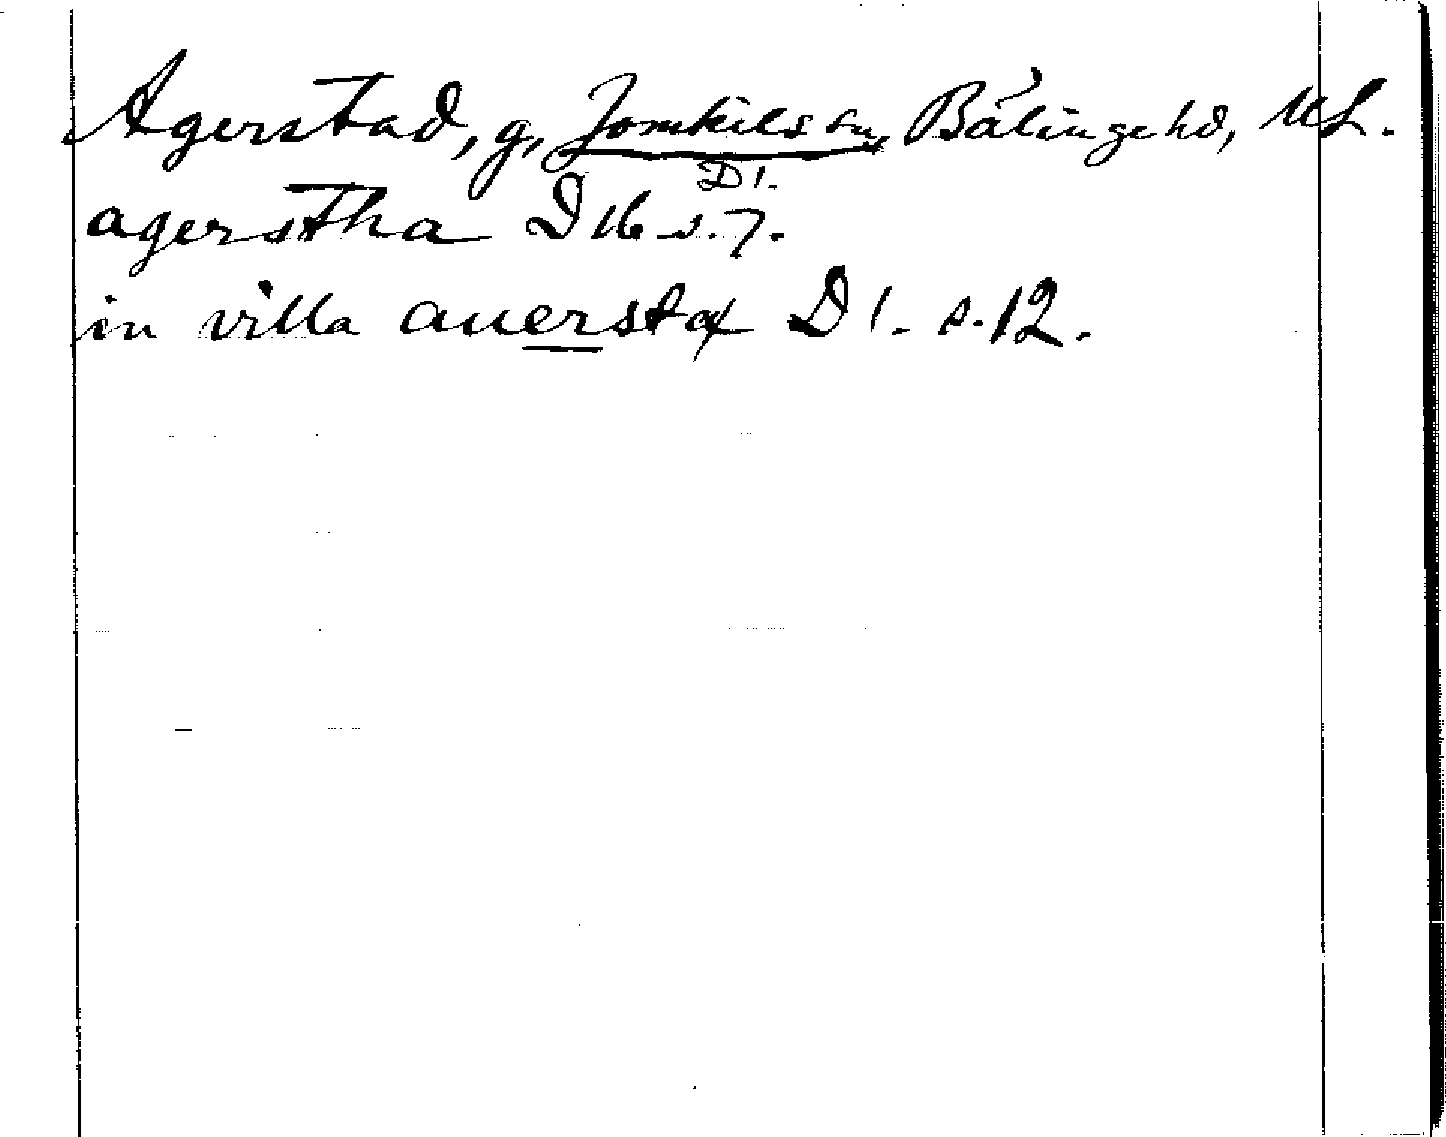 Agerstad, g, Jomkils sn, Bälinge hd, UL.
D 1.
agerstha D 16 s. 7.
in villa auersta D 1. s. 12.